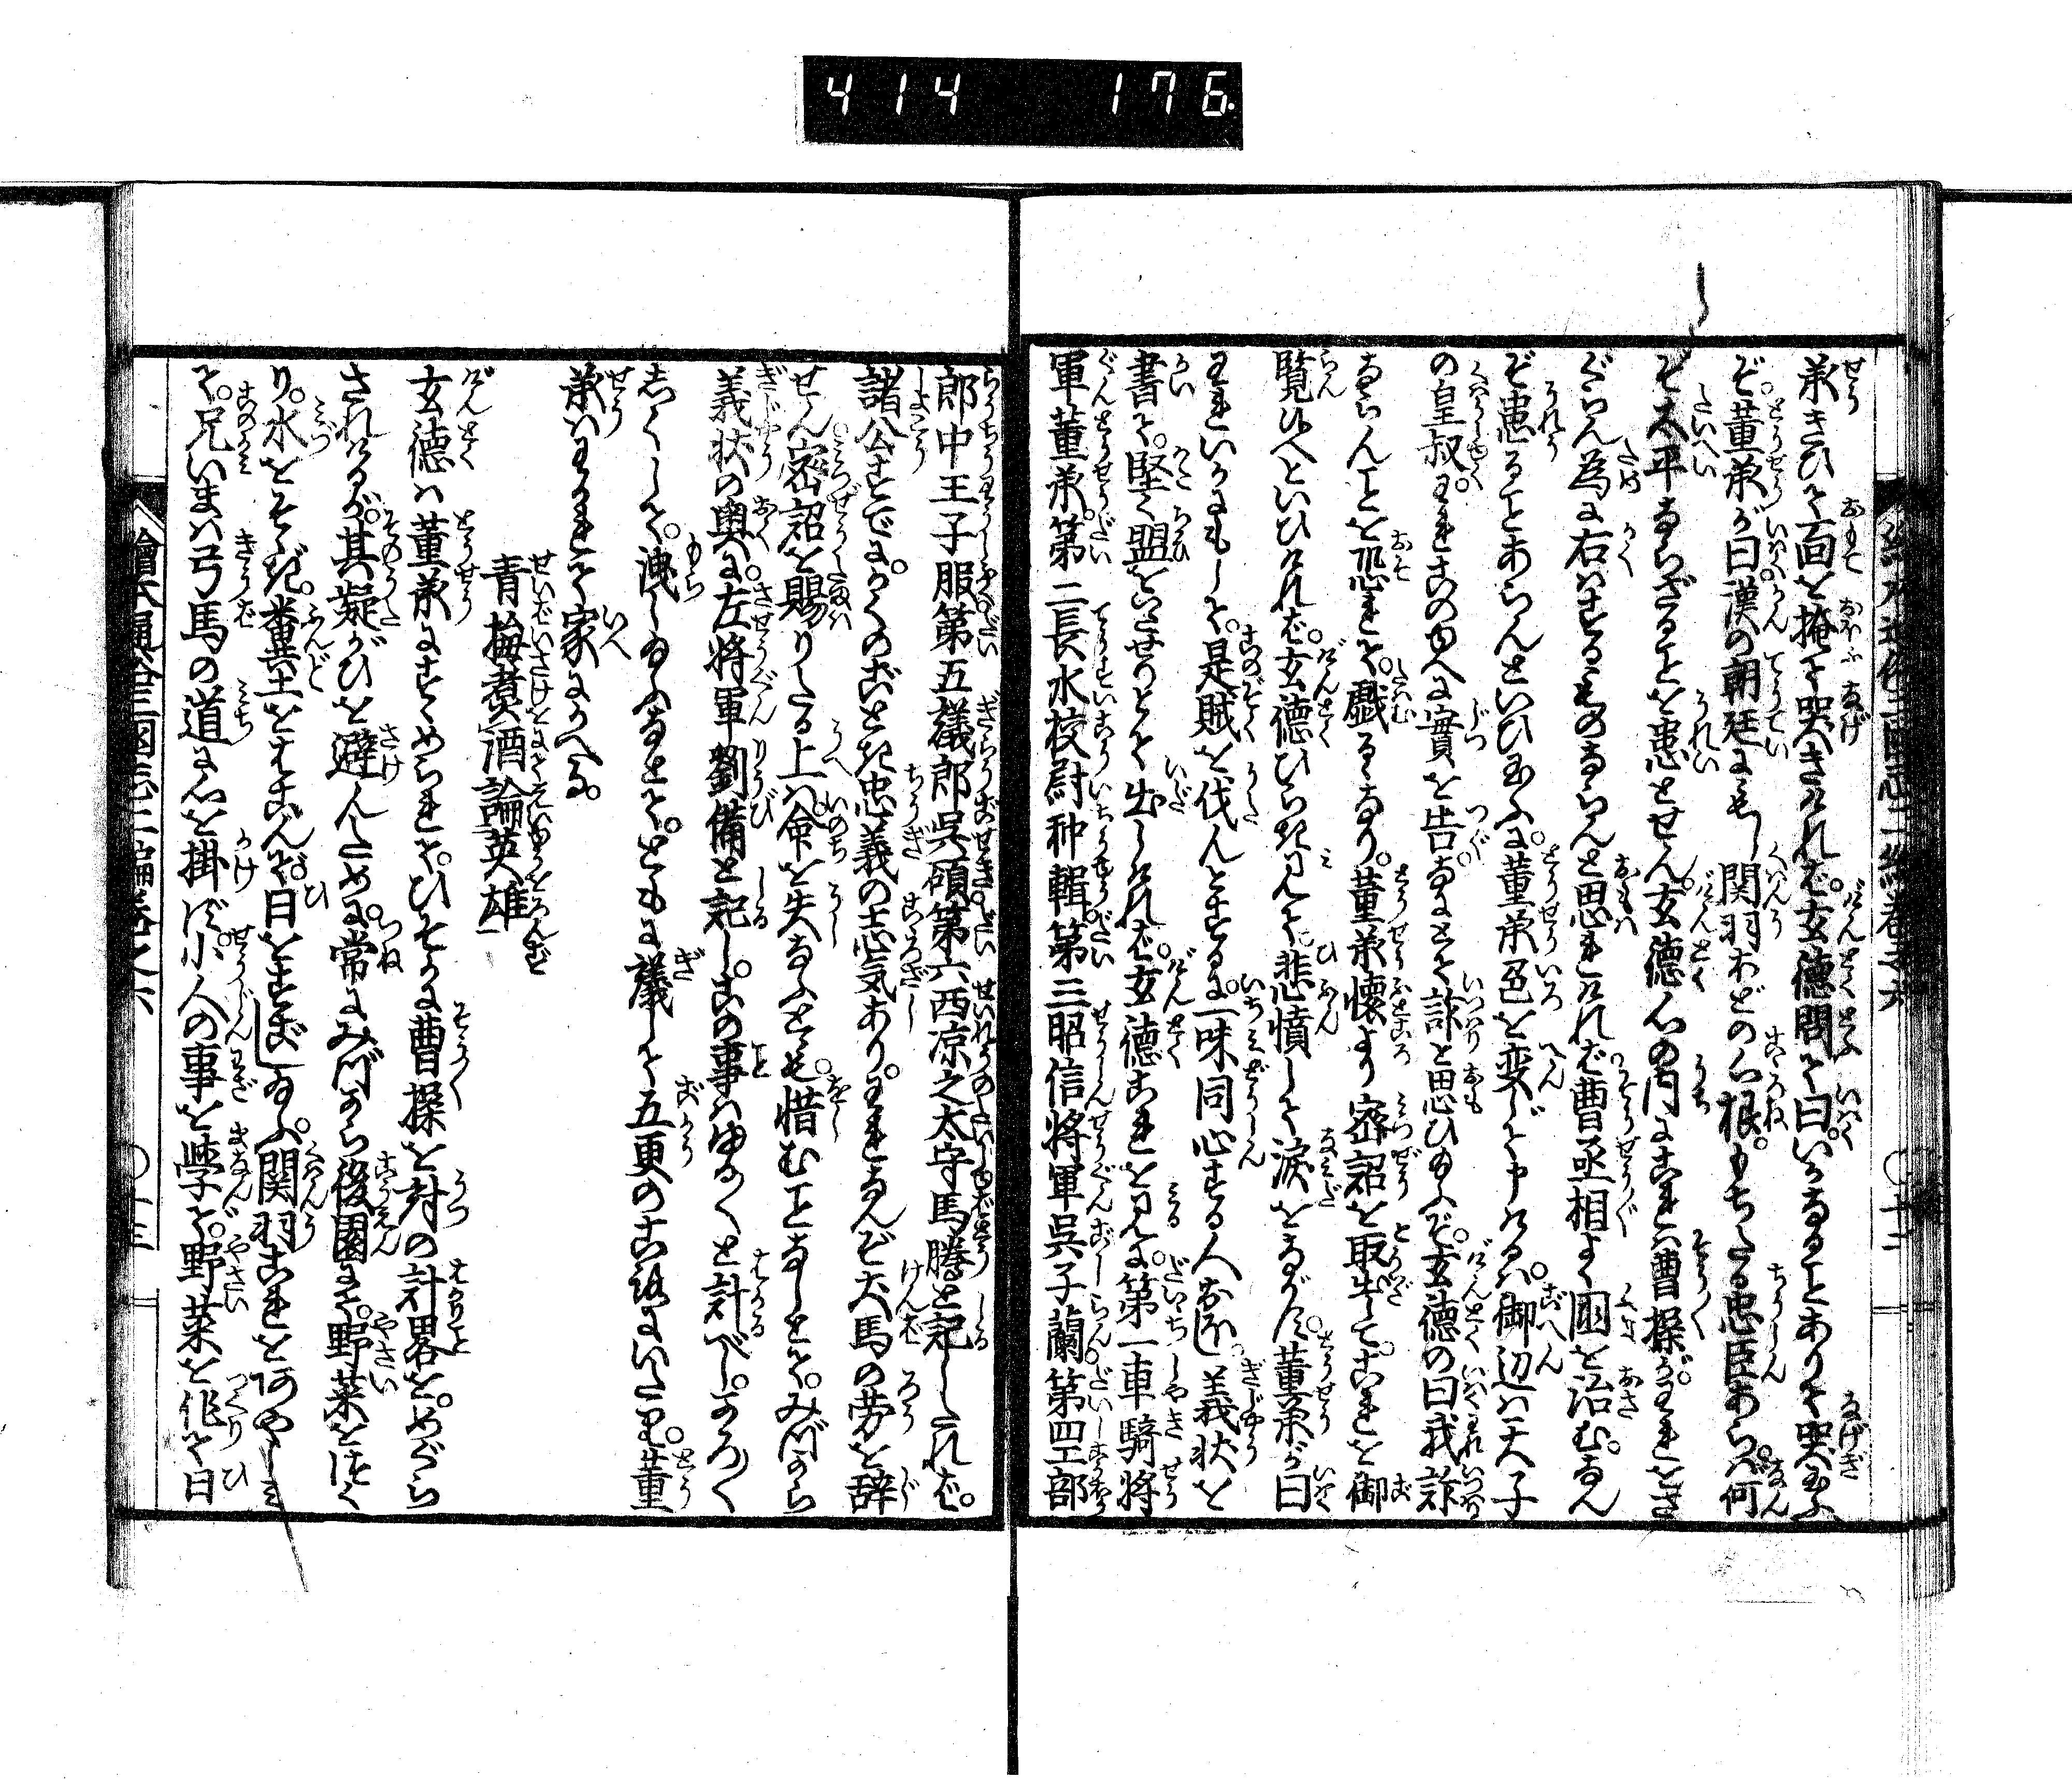 414 176
承きひて面を掩て哭きけれバ。玄德問て曰。いかなるヿありて哭玉ふ
ぞ。董承が曰漢の朝廷にもし関羽おどの心根。もちたる忠臣あらバ。何
ぞ太平ならざるヿを患とせん。玄德心の内にこれハ曹操が。われをさ
ぐらん為に右ハするものならんと思ゐけれバ曹丞相よく国を治む。なん
ぞ患るヿあらんといひ玉ふに。董承色を変じて申けるハ。御辺ハ天子
の皇叔。われこのゆへに實を告。なにとて詐と思ひ玉ふぞ。玄德の曰我詐
ならんヿを恐れて。戯るゝなり。董承懐より密詔を取出して。これを御
覧候へといひけれバ。玄德ひらき見て。悲憤して涙をながす。董承が曰
われいかにもして。是賊を伐んとするに。一味同心する人おほし。義状を
書て。堅く盟をいたせりとて出しけれバ。玄德これを見に。第一車騎将
軍董承。第二長水校尉种輯。第三昭信将軍呉子蘭。第四工部
郎中王子服第五議郎呉碩第六西凉之太守馬騰と記したれバ。
諸公すでに。かくのごとき忠義の志気あり。われなんぞ犬馬の労を辞
せん密詔を賜りたる上ハ。命を失なふとも。惜むヿなしとて。みづから
義状の奥に。左将軍劉備と記し。この事ハゆる〱と計べし。かろ〲
しくして。洩し玉ふなとて。ともに議して五更のころにいたり。董
承ハわかれて家にかへる。
青梅煮酒論英雄
玄德ハ董承にすゝめられて。ひそかに曹操を討の計畧を。めぐら
されけるが。其疑がひを避んため。常にみづから後園にて。野菜をほく
り。水をそゝぎ。糞土をはこんで。日をすごし玉ふ。関羽これをあやしみ
て。兄いまハ弓馬の道に心を掛ず。小人の事を學て。野菜を作て日
繪本通俗三國志二編巻之六 〇十二
繪本通俗三國志二編巻之六 〇十三